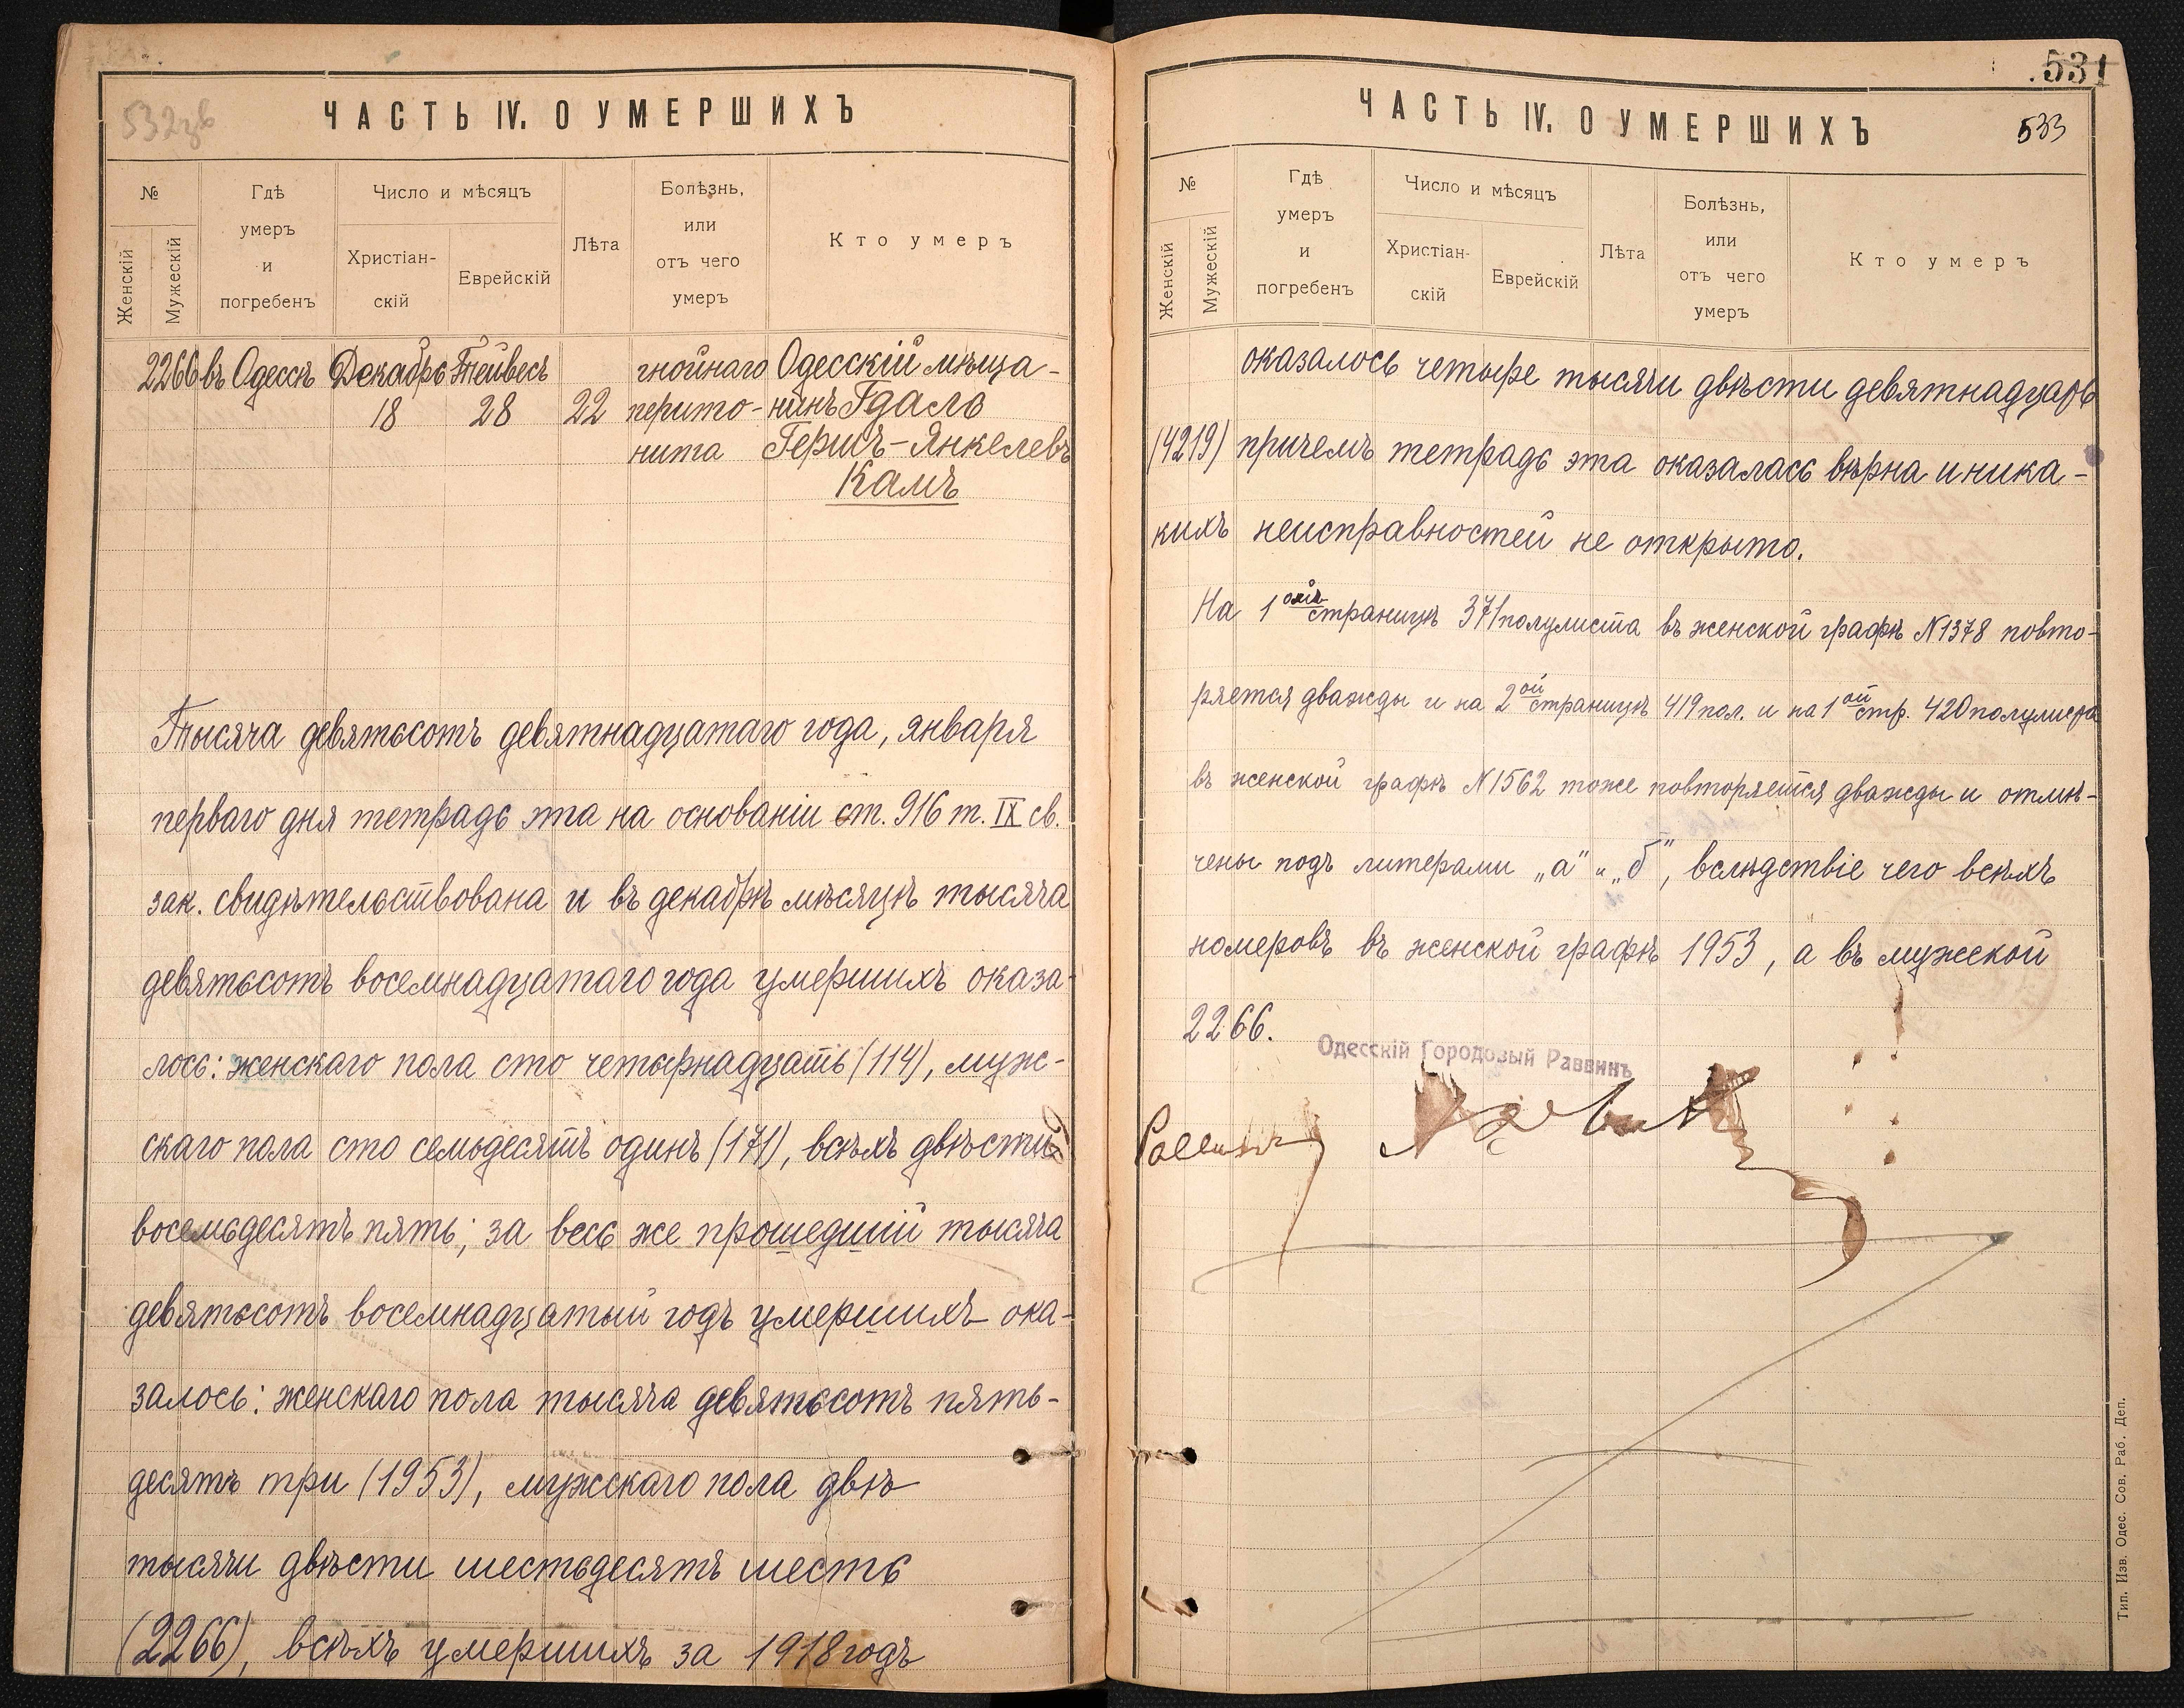 532об
ЧАСТЬ IV. О УМЕРШИХЪ
№
Женскій
Мужескій
Гдѣ
умеръ
и
погребенъ
Число и мѣсяцъ
Христіан-
скій
Еврейскій
Лѣта
Болѣзнь,
или
отъ чего
умеръ
Кто умеръ
2266 въ Одессѣ Декабрь Тейвесъ гнойнаго Одесскій мѣща-
18 28 22 перито- нинъ Гдаль
нита Гершъ-Янкелевъ
Камъ
Тысяча девятьсотъ девятнадцатаго года, января
перваго дня тетрадь эта на основаніи ст. 916 т. IX св.
зак. свидѣтельствована и въ декабрѣ мѣсяцѣ тысяча
девятьсотъ восемнадцатаго года умершихъ оказа-
лось: женскаго пола сто четырнадцать (114), муж-
скаго пола сто семьдесятъ одинъ (171), всѣхъ двѣсти
восемьдесятъ пять; за весь же прошедшій тысяча
девятьсотъ восемнадцатый годъ умершихъ ока-
залось: женскаго пола тысяча девятьсотъ пять-
десятъ три (1953), мужскаго пола двѣ
тысячи двѣсти шестьдесятъ шесть
(2266), всѣхъ умершихъ за 1918 годъ
531
ЧАСТЬ IV. О УМЕРШИХЪ
533
№
Женскій
Мужескій
Гдѣ
умеръ
и
погребенъ
Число и мѣсяцъ
Христіан-
скій
Еврейскій
Лѣта
Болѣзнь,
или
отъ чего
умеръ
Кто умеръ
оказалось четыре тысячи двѣсти девятнадцать
(4219) причемъ тетрадь эта оказалась вѣрна и ника-
кихъ неисправностей не открыто.
На 1ой страницѣ 371 полулиста въ женской графѣ №1378 повто-
ряется дважды и на 2ой страницѣ 419 пол. и на 1ой стр. 420 полулиста
въ женской графѣ №1562 тоже повторяется дважды и отмѣ-
чены подъ литерами „а" и „б", вслѣдствіе чего всѣхъ
номеровъ въ женской графѣ 1953, а въ мужской
2266.
Одесскій Городовый Раввинъ
Раввинъ
Тип. Изв. Одес. Сов. Раб. Деп.